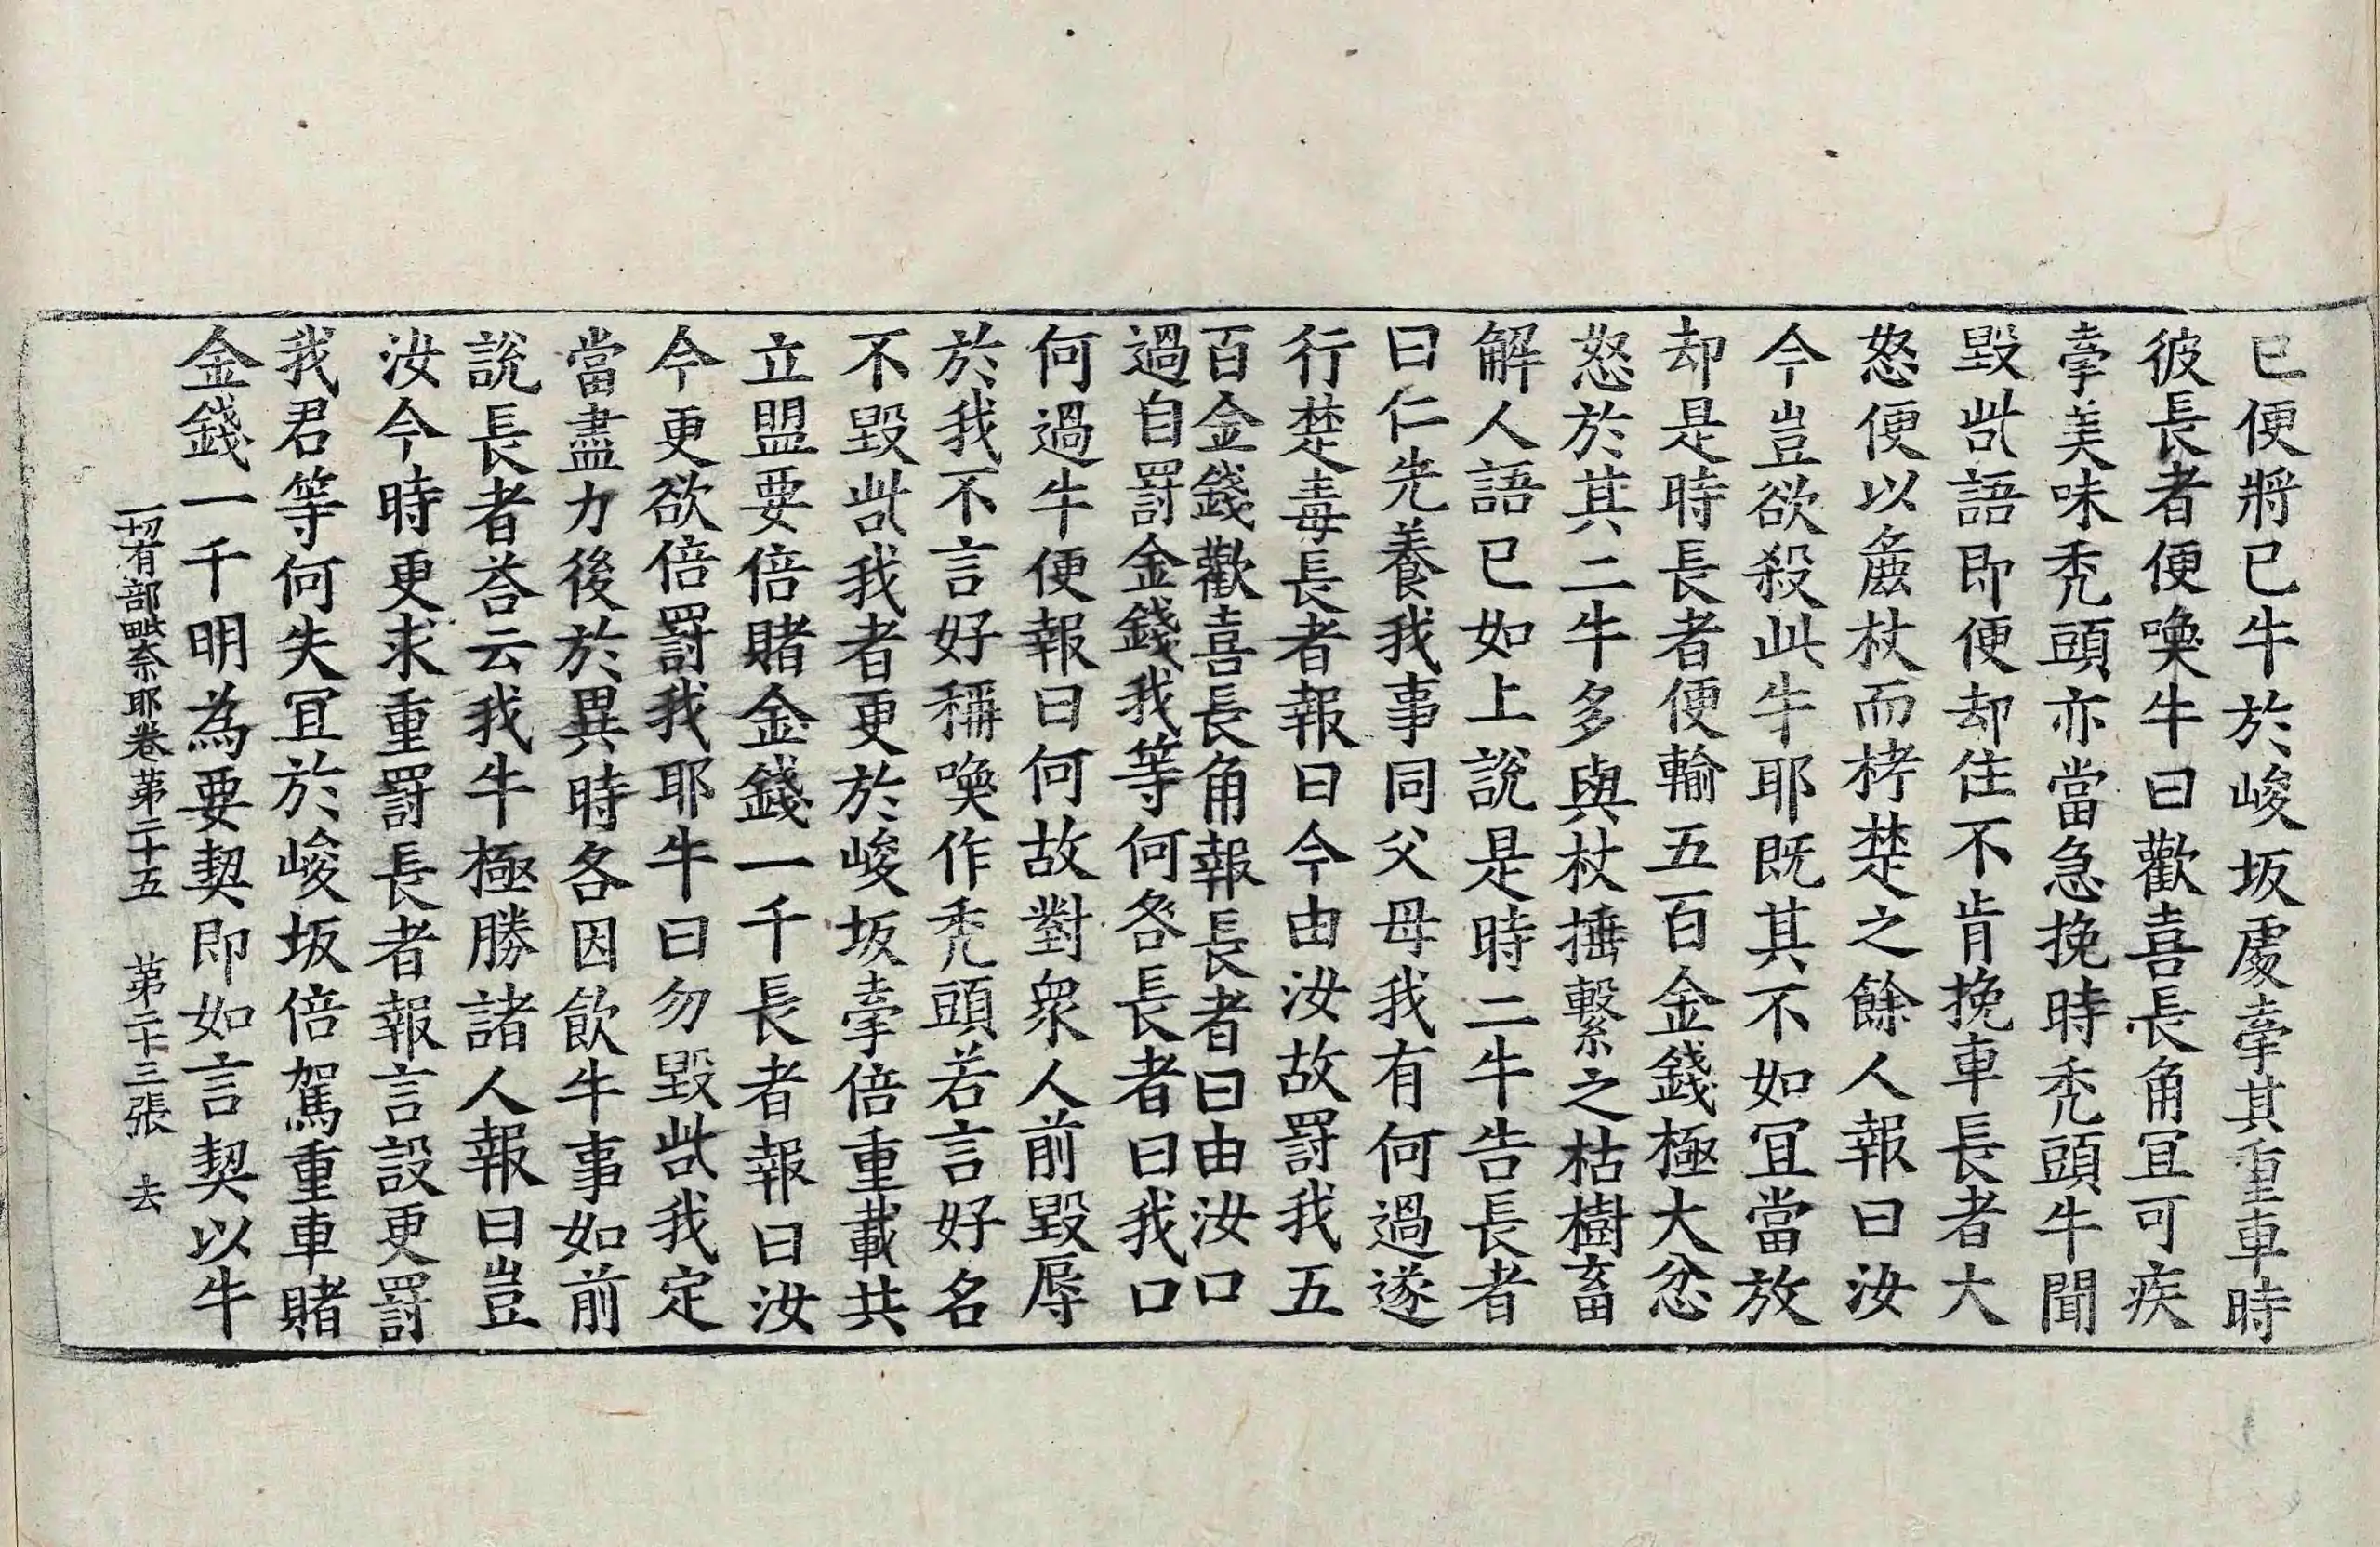 已便將己牛於峻坂處牽其重車時
彼長者便喚牛曰歡喜長角冝可疾
牽美味禿頭亦當急挽時禿頭牛聞
毀呰語即便却住不肯挽車長者大
怒便以麁杖而栲楚之餘人報曰汝
今豈欲殺此牛耶既其不如冝當放
却是時長者便輸五百金錢極大忿
怒於其二牛多與杖捶繫之枯樹畜
解人語已如上說是時二牛告長者
曰仁先養我事同父母我有何過遂
行楚毒長者報曰今由汝故罸我五
百金錢歡喜長角報長者曰由汝口
過自罸金錢我等何咎長者曰我口
何過牛便報曰何故對眾人前毀辱
於我不言好稱喚作禿頭若言好名
不毀呰我者更於峻坂牽倍重載共
立盟要倍賭金錢一千長者報曰汝
今更欲倍罸我耶牛曰勿毀呰我定
當盡力後於異時各因飲牛事如前
說長者荅云我牛極勝諸人報曰豈
汝今時更求重罸長者報言設更罸
我君等何失冝於峻坂倍駕重車賭
金錢一千明為要契即如言契以牛
一切有部毗奈耶卷第二十五　第二十三張　去